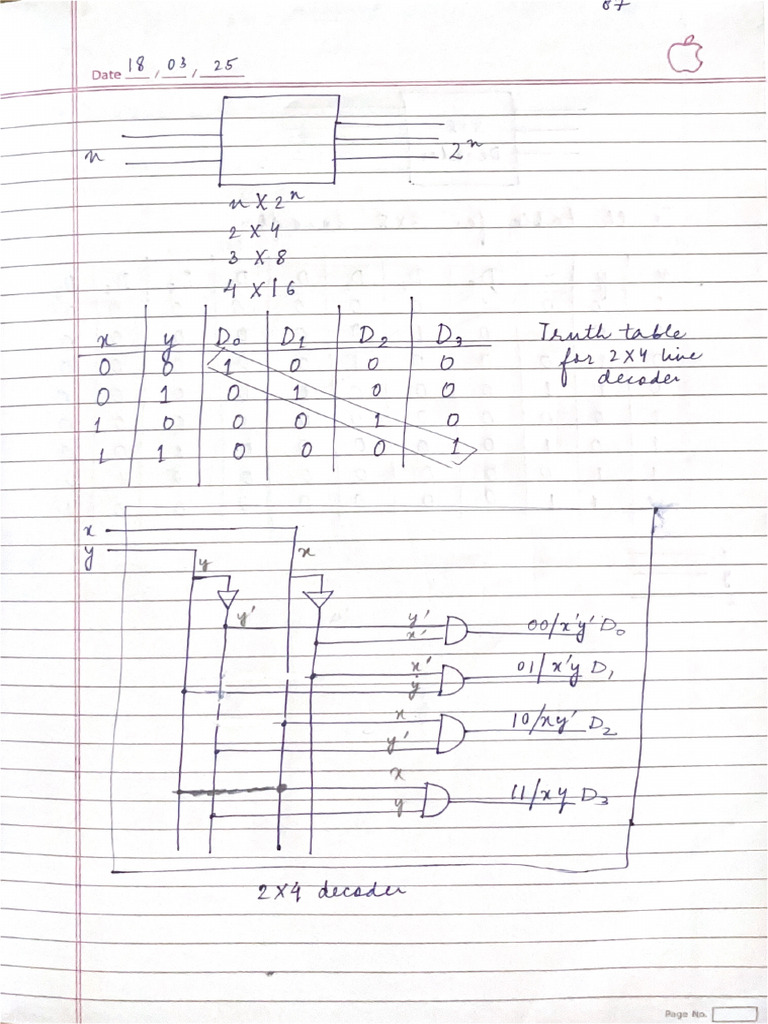 07
Date 18 / 03 / 25
n 2ⁿ
n X 2ⁿ
2 X 4
3 X 8
4 X 16
x y D₀ D₁ D₂ D₃
0 0 1 0 0 0
0 1 0 1 0 0
1 0 0 0 1 0
1 1 0 0 0 1
Truth table
for 2X4 line
decoder
x
y
y x
y'
y'
x'
00/x'y' D₀
x'
y
01/x'y D₁
x
y'
10/xy' D₂
x
y
11/xy D₃
2X4 decoder
Page No.